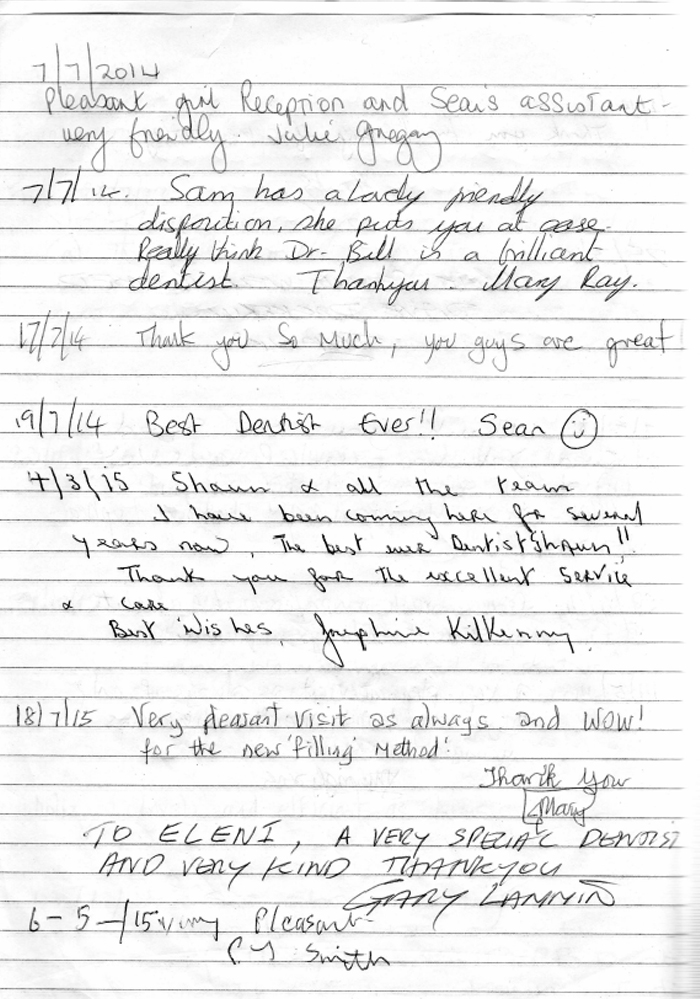 7/7/2014
Pleasant girl Reception and Sean's assistant -
very friendly. Julie Gregan
7/7/14. Sam has a lovely friendly
disposition, she puts you at ease.
Really think Dr. Bill is a brilliant
dentist. Thankyou. Mary Ray.
17/7/14 Thank you So Much, you guys are great
19/7/14 Best Dentist Ever!! Sean ☺
4/3/15 Shaun & all the team
I have been coming here for several
years now, The best ever Dentist Shaun!!
Thank you for the excellent service
& care
Best Wishes, Josephine Kilkenny.
18/7/15 Very pleasant visit as always and WOW!
for the new 'filling' Method!
Thank You
Mary
TO ELENI, A VERY SPECIAL DENTIST
AND VERY KIND THANKYOU
GARY LANNIN
6-5-/15 very Pleasant
Smith